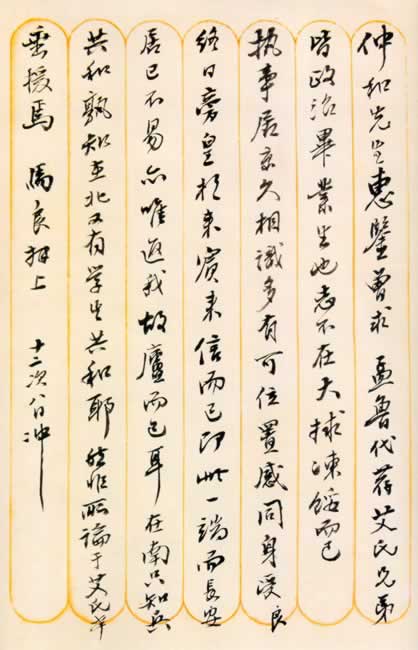 仲和先生惠鑒曾求孟魯代荐艾氏兄弟
皆政治畢業生也志不在大捄凍餒而已
執事居京久相識多有可位置感同身受良
終日旁皇於東賓來信而已即此一端而長安
居已不易亦唯返我故廬而已耳在南只知兵
共和孰知在北又有学生共和耶然非所論于艾氏弟
垂援焉 馬良拜上 十二次八日冲